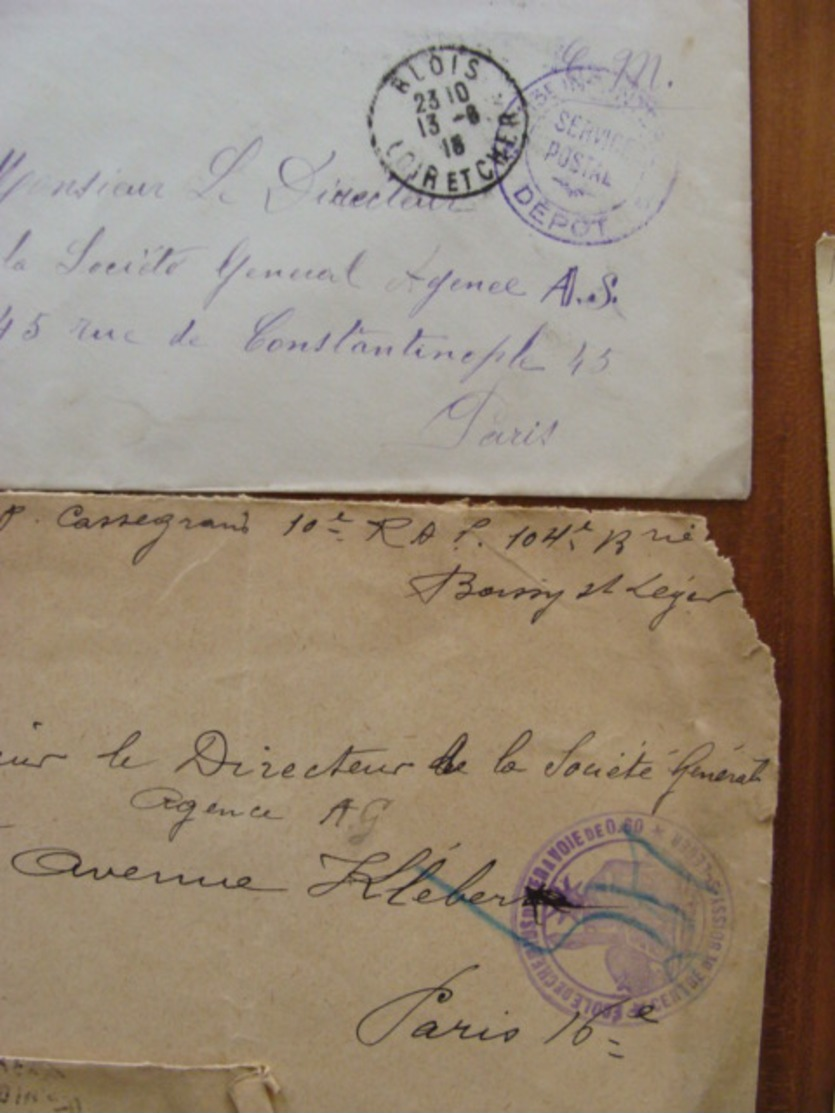 C. M.
BLOIS
23 10
13 -8
18
LOIR ET CHER
SERVICE
POSTAL
DÉPÔT
Monsieur Le Directeur
la Société General Agence A.S.
45 rue de Constantinople 45
Paris
P. Cassegrain 10e R A P. 104e Brie
Boissy st Léger
le Directeur de la Société Général
Agence AG
avenue Kléber
Paris 16e
ÉCOLE DE CHEMINS DE FER A VOIE DE 0.60 * CENTRE DE